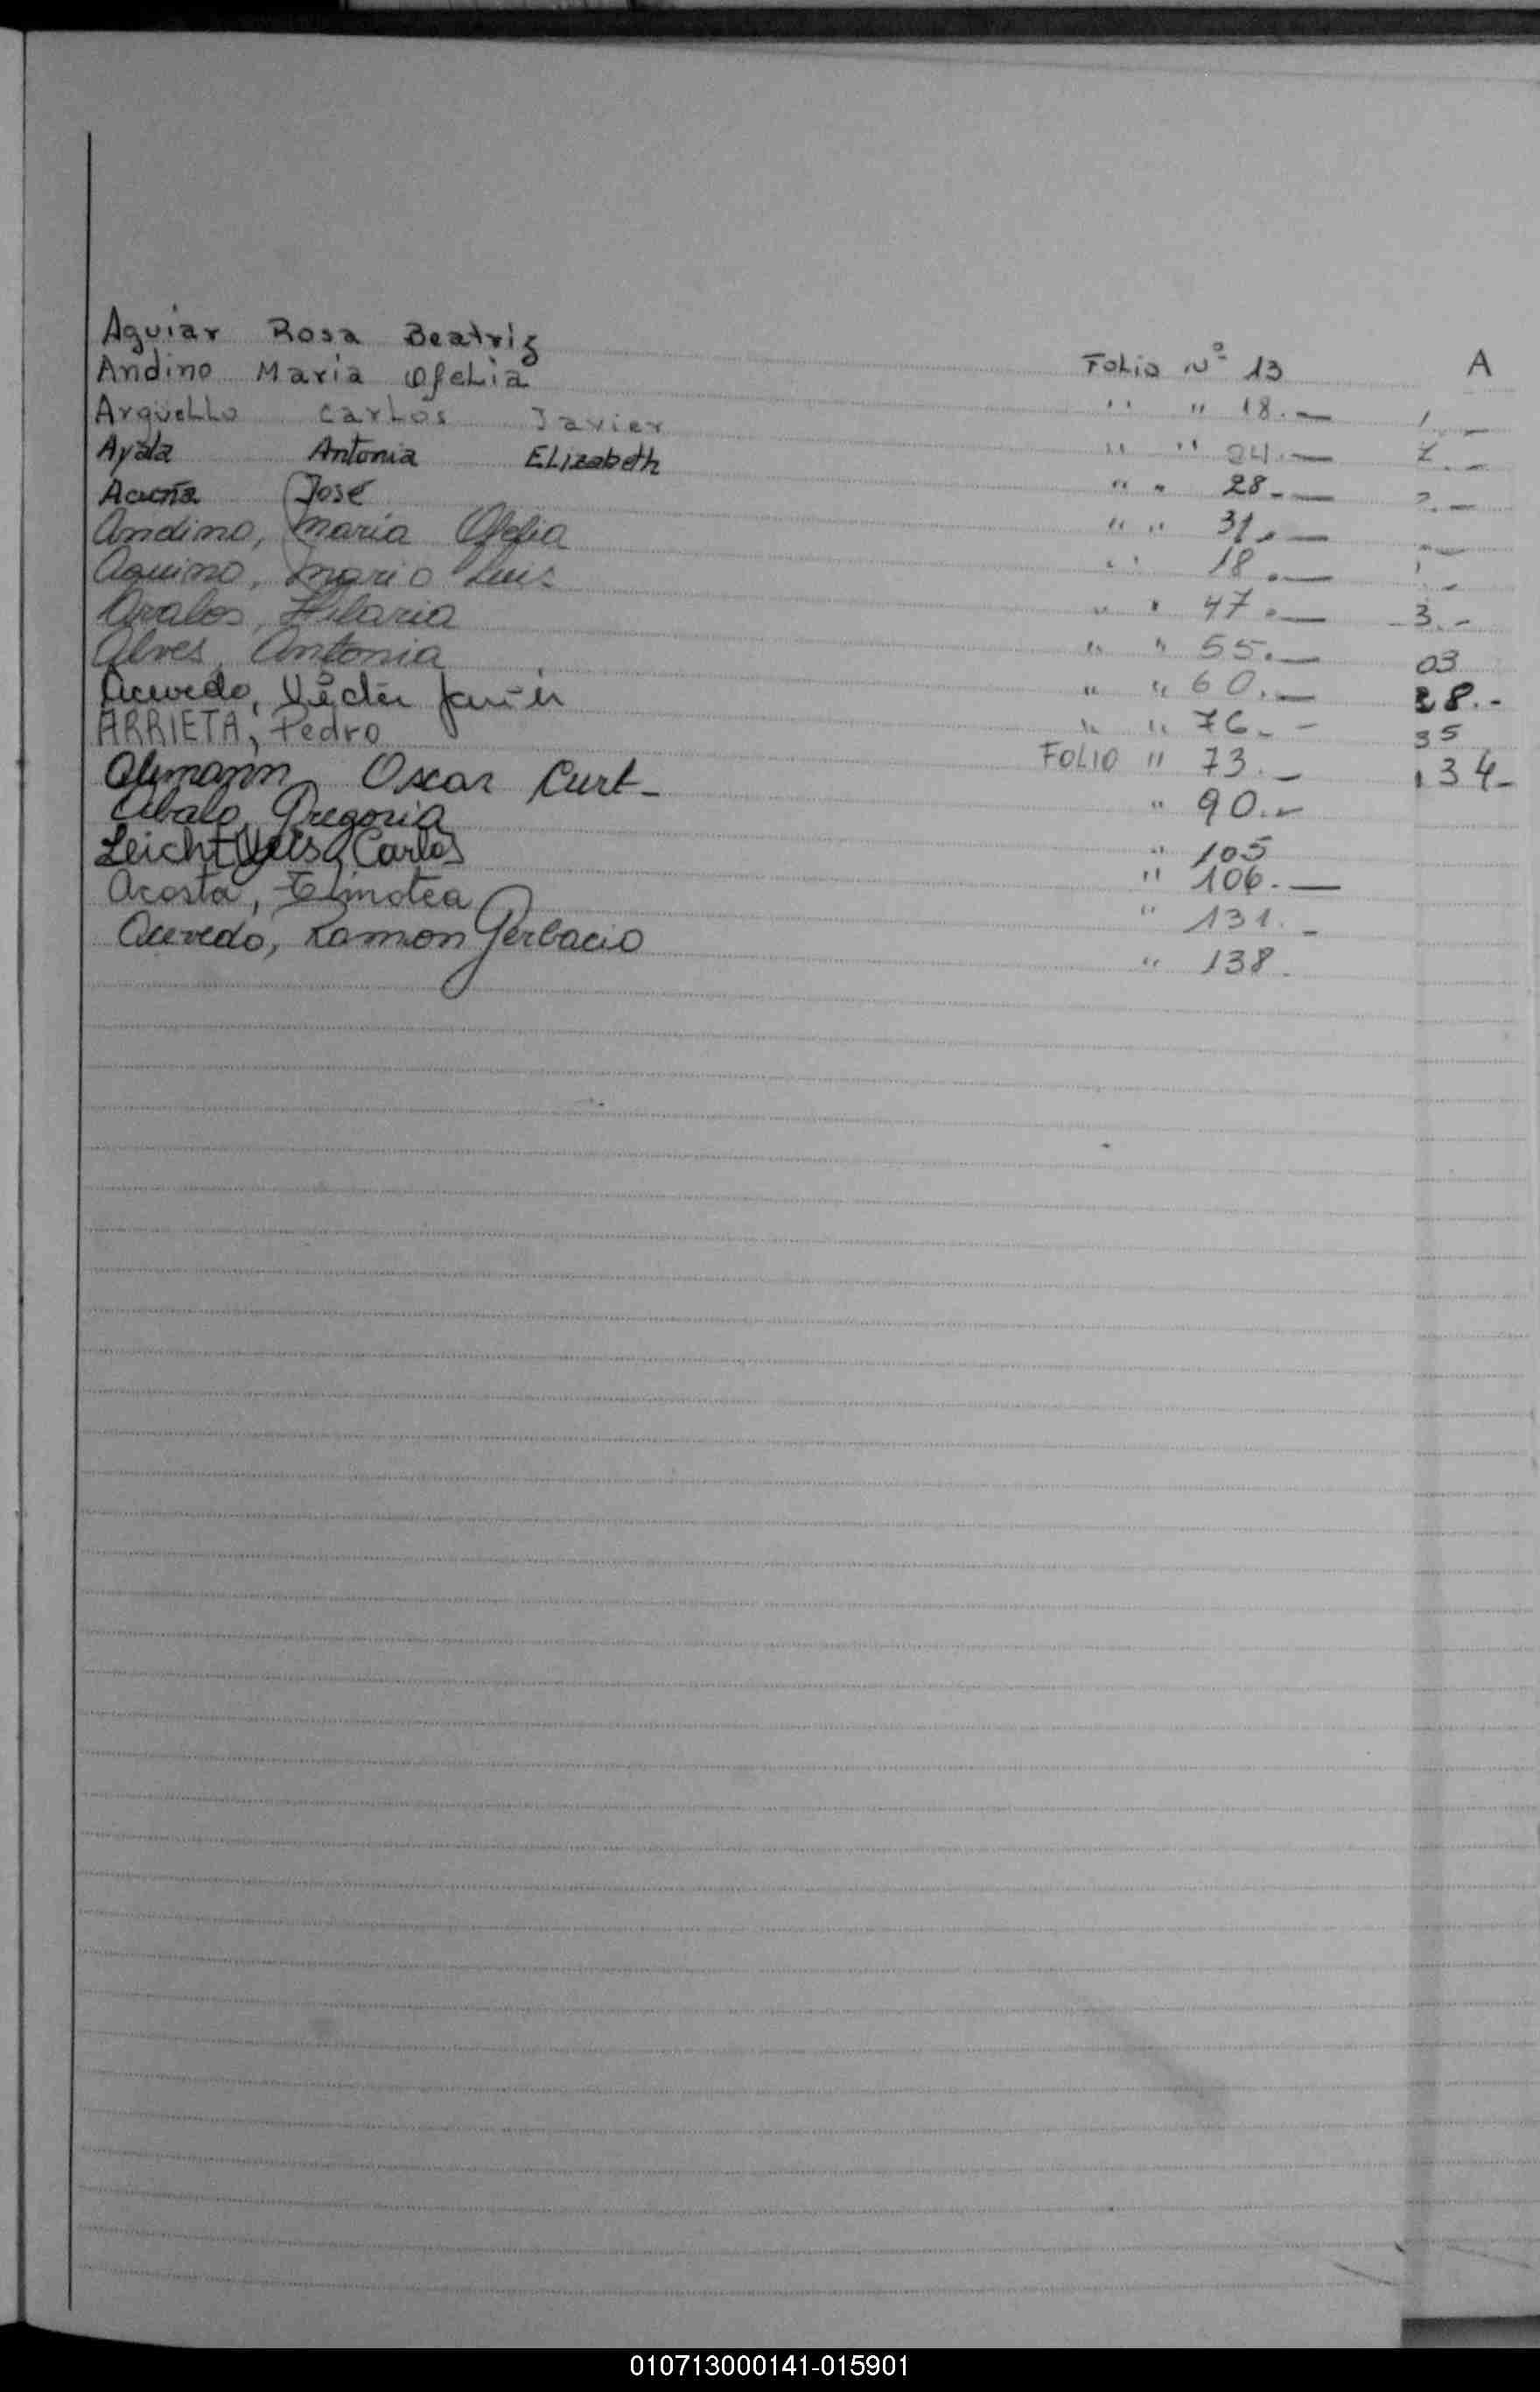 A
Aguiar Rosa Beatriz Folio Nº 13
Andino Maria Ofelia " " 18.—
Argüello Carlos Javier " " 24.—
Ayala Antonia Elizabeth " " 28.—
Acuña José " " 31.—
Andino, Maria Ofelia " " 18.—
Aquino, Mario Luis " " 47.—
Avalos, Hilaria " " 55.—
Alves, Antonia " " 60.—
Acevedo, Víctor Javier " " 76.-
ARRIETA, Pedro FOLIO " 73.—
Oscar Curt- " 90.-
Gregoria " 105
Leicht Carlos " 106.—
Acosta, " 131.-
Acevedo, Ramon Gerbacio " 138.
3.-
03
28.-
35
134-
010713000141-015901